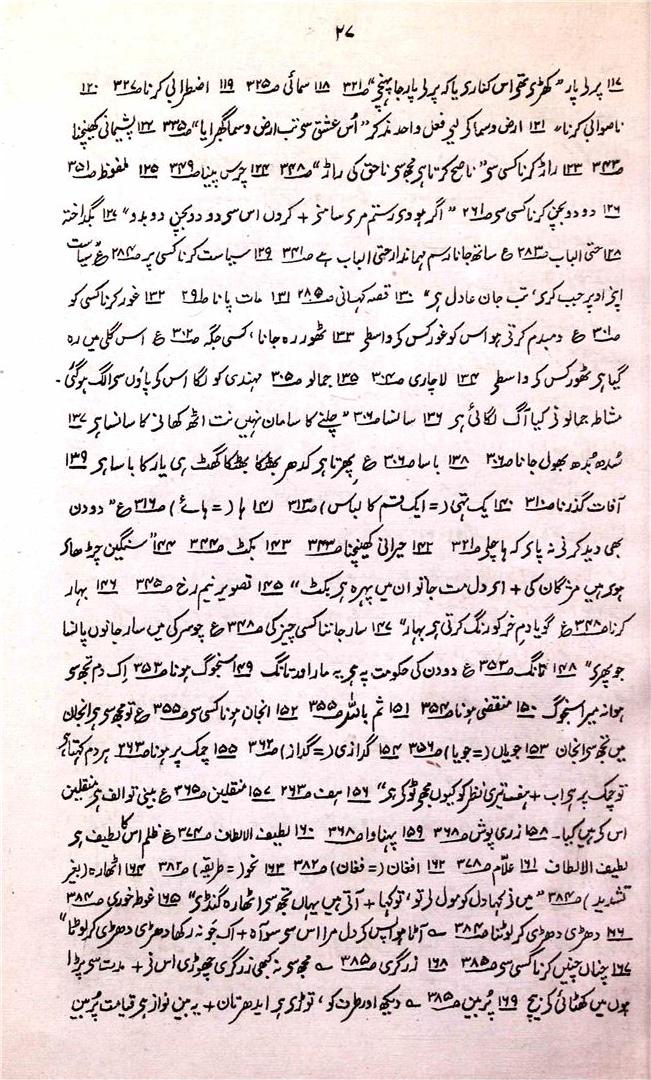 ۲۷
۱۱۷ پرلی پار "کھڑی تھی اس کناری یا کہ پرلی پار جا پہنچی" ص۳۲۱ ۱۱۸ سمائی ص۳۲۵ ۱۱۹ اضطرابی کرنا ص۳۲۷ ۱۲۰
ناصوابی کرنا" ۱۲۱ ارض و سما کر لیی فعل واحد مذکر "اُس عشق سی تب ارض و سما گھبرایا" ص۳۳۵ ۱۲۲ پشیمانی کھینچنا
ص۳۴۳ ۱۲۳ راڈ کرنا کسی سی "ناصح کرتا ہی مجھ سی ناحق کی راڈ" ص۳۴۸ ۱۲۴ چرس پینا ص۳۴۹ ۱۲۵ ملفوظ ص۳۵۱
۱۲۶ دو دو بچن کرنا کسی سی ص۲۶۱ "اگر ہووی رستم مری سامنی + کروں اس سی دو دو بچن دو بدو" ۱۲۷ بگداختہ
۱۲۸ حتی الباب ص۲۸۳ ع ساتھ جانا رسم ہماندار حتی الباب ہے ص۳۴۱ ۱۲۹ سیاست کرنا کسی پر ص۲۸۴ ع سیاست
اپنی اوپر جب کری، تب جان عادل ہی" ۱۳۰ قصہ کہانی ص۲۸۵ ۱۳۱ مات پانا ط۲۹ ۱۳۲ غور کرنا کسی کو
ص۳۰۱ ع دمبدم کرتی ہو اس کو غور کس کی واسطی ۱۳۳ ٹھور رہ جانا، کسی جگہ ص۳۰۲ ع اس گلی میں رہ
گیا ہی ٹھور کس کی واسطی ۱۳۴ لاچاری ص۳۰۴ ۱۳۵ جمالو ص۳۰۵ مہندی کو لگا اس کی پاوں سی الگ ہو گئی۔
مشاطہ جمالو نی کیا آگ لگائی ہی ۱۳۶ سانسا ص۳۰۶ "چلنے کا سامان نہیں نت اٹھ کھانی کا سانسا ہی ۱۳۷
سُدھ بُدھ بھول جانا ص۳۰۶ ۱۳۸ باسا ص۳۰۶ ع پھرتا ہی کدھر بھٹکا بھٹکا گھٹ ہی یار کا باسا ہی ۱۳۹
آفات گذرنا ص۳۱۰ ۱۴۰ یک تہی (= ایک قسم کا لباس) ص۳۱۳ ۱۴۱ ہا (= ہائے) ص۳۱۶ ع "دو دن
بھی دید کرنی نہ پائی کہ ہا چلی ص۳۲۱ ۱۴۲ حیرانی کھینچنا ص۳۴۳ ۱۴۳ بکٹ ص۳۴۴ ۱۴۴ "سنگین چڑھائی
ہوی ہیں مژگان کی + ای دل مت جا تو ان میں پہرہ ہی بکٹ" ۱۴۵ تصویر نیم رخ ص۳۴۵ ۱۴۶ بہار
کرنا ص۳۴۸ ع گویا دمِ خر کو رنگ کرتی ہی بہار" ۱۴۷ سار جاننا کسی چیز کی ص۳۴۸ ع چوسر کی میں سار جانوں پانسا
جو پھری" ۱۴۸ تانگ ص۳۵۳ ع دو دن کی حکومت پہ ہی یہ مار اور تانگ ۱۴۹ سنجوگ ہونا ص۳۵۳ اک دم تجھ سی
ہوا نہ میرا سنجوگ ۱۵۰ منقضی ہونا ص۳۵۴ ۱۵۱ ثم باللہ ص۳۵۵ ۱۵۲ انجان ہونا کسی سی ص۳۵۵ ع تو مجھ سی ہی انجان
میں تجھ سی انجان ۱۵۳ جویاں (= جویا) ص۳۵۶ ۱۵۴ گدازی (= گداز) ص۳۶۲ ۱۵۵ چمک پر ہونا ص۲۶۳ ہر دم کہتا ہی
تو چمک پر ہی اب + ہدف تیری نظر کو کیوں مجھی توڑکر ہی" ۱۵۶ ہدف ص۲۶۳ ۱۵۷ منقلین ص۳۶۵ ع بینی تو الف ہی منقلین
اس کی ہیں کیا۔ ۱۵۸ زری پوش ص۳۶۸ ۱۵۹ پہناوا ص۳۶۸ ۱۶۰ لطیف الالطاف ص۳۷۴ ع ظلم اس کا لطیف ہی
لطیف الالطاف ۱۶۱ علّام ص۳۷۸ ۱۶۲ افغان (= فغان) ص۳۸۲ ۱۶۳ نحو (= طریقہ) ص۳۸۲ ۱۶۴ اٹھارہ (بغیر
تشدید) ص۳۸۴ "میں نی کہا دل کو مول لی تو، تو کہا + آتی ہیں یہاں تجھ سی اٹھارہ گنڈی" ۱۶۵ غوط خوری ص۳۸۴
۱۶۶ دھڑی دھڑی کر لوٹنا ص۳۸۴ ؎ آٹا پس کی دل مرا اس سی سوا + اک جَو نہ رکھا دھڑی دھڑی کر لوٹا"
۱۶۷ چناں چنیں کرنا کسی سی ص۳۸۵ ۱۶۸ زرگری ص۳۸۵ ؎ مجھ سی نہ کبھی زرگری چھوڑی اس نی + مدت سی پڑا
ہوں میں کھٹائی کی بیچ ۱۶۹ پُربین ص۳۸۵ ؎ دیکھ اور طرف کو، تو ڑی ہی ایدھر تان + یہ بین نواز ہی قیامت پُربین